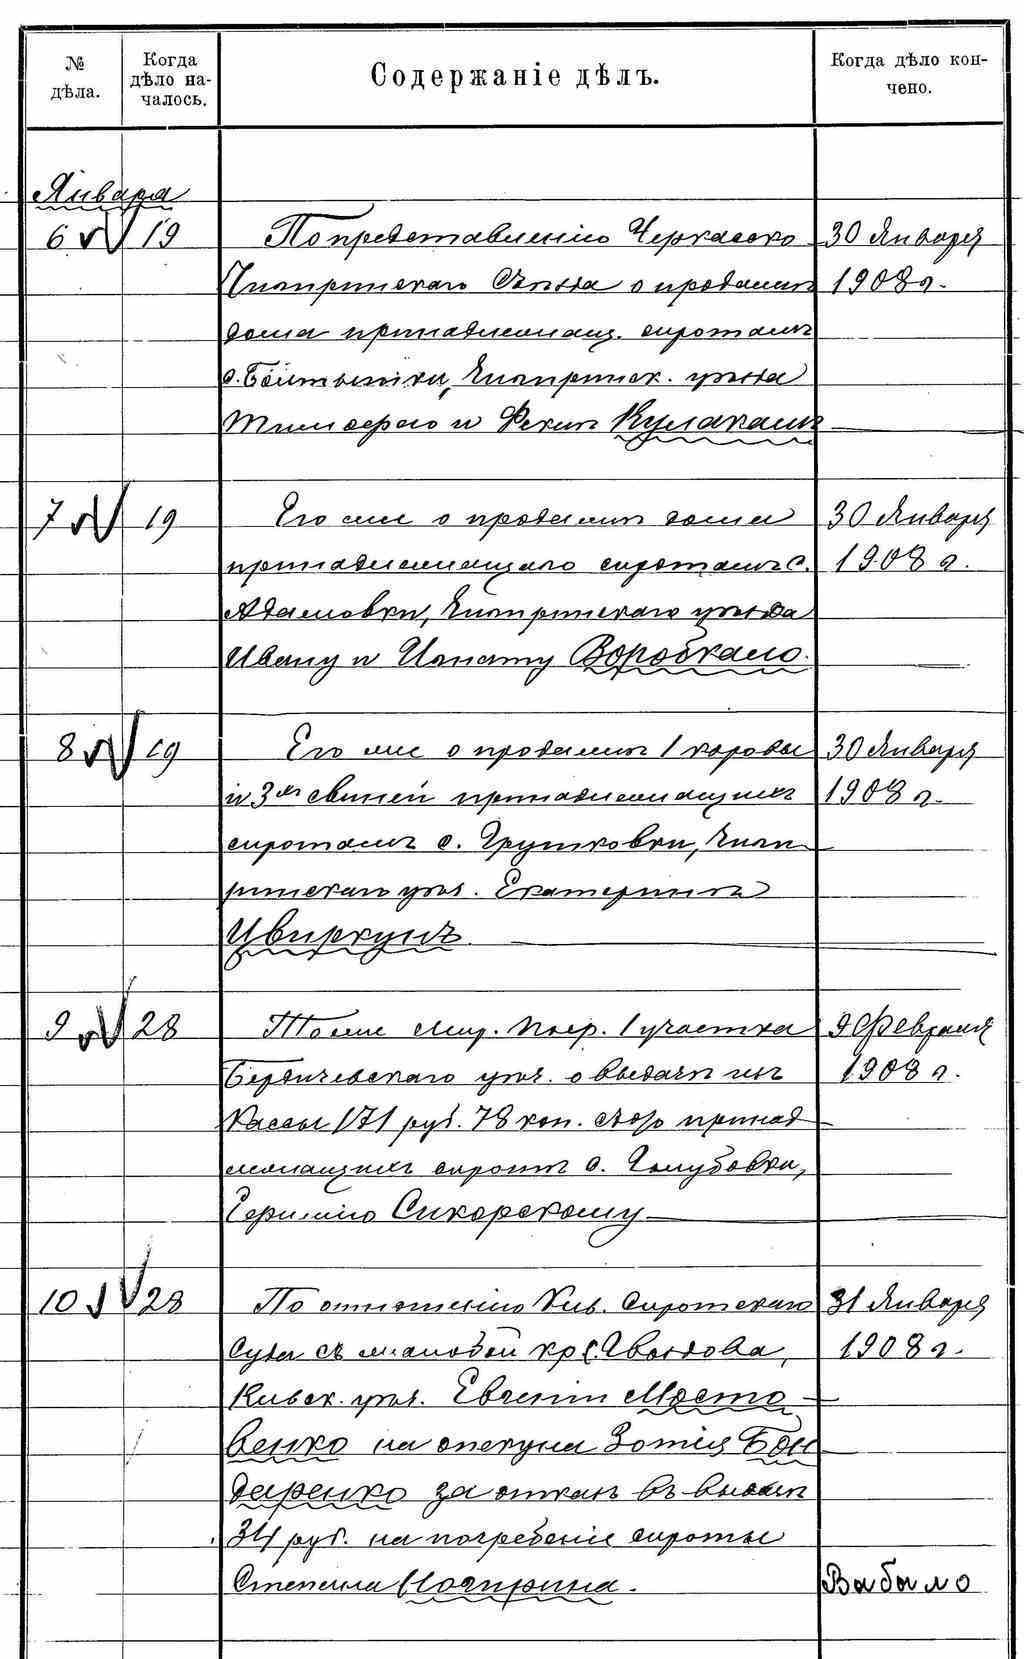 № дѣла.
Когда дѣло на-
чалось.
Содержаніе дѣлъ.
Когда дѣло кон-
чено.
Января
6 19 По представленію Черкасско 30 Января
Чигиринскаго Съѣзда о продажѣ 1908 г.
дома принадлежащ. сиротамъ
с. Болтышки, Чигиринск. уѣзда
Тимофею и Феклѣ Кулакамъ
7 19 Его же о продажѣ дома 30 Января
принадлежащаго сиротамъ с. 1908 г.
Адамовки, Чигиринскаго уѣзда
Ивану и Игнату Воробкало.
8 19 Его же о продажѣ 1 коровы 30 Января
и 3хъ свиней принадлежащихъ 1908 г.
сиротамъ с. Грушковки, Чиги-
ринскаго уѣз. Екатеринѣ
Цвиркунъ.
9 28 Тоже Мир. Поср. 1 участка 9 Февраля
Бердичевскаго уѣз. о выдачѣ изъ 1908 г.
Кассы 171 руб. 78 коп. сбор принад
лежащихъ сиротѣ с. Голубовки,
Сикорскому
10 28 По отношенію Кіев. Сиротскаго 31 Января
Суда съ жалобой кр. с. Гвоздова, 1908 г.
Кіевск. уѣз. Евгеніи Мосто-
венко на опекуна Зотія Бон
даренко за отказъ въ выдачѣ
34 руб. на погребеніе сироты
Степана